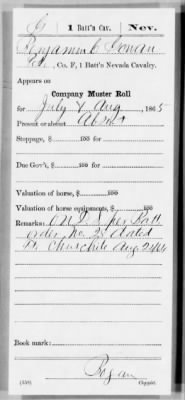 G | 1 Batt'n Cav. | Nev.
Benjamin C
, Co. F, 1 Batt'n Nevada Cavalry.
Appears on
Company Muster Roll
for July & Aug, 1865
Present or absent Absent
Stoppage, $ 100 for
Due Gov't, $ 100 for
Valuation of horse, $ 100
Valuation of horse equipments, $ 100
Remarks: On D.S. per Batt
order No. 23 dated
Ft Churchill Aug 24/64
Book mark:
(358) Copyist.